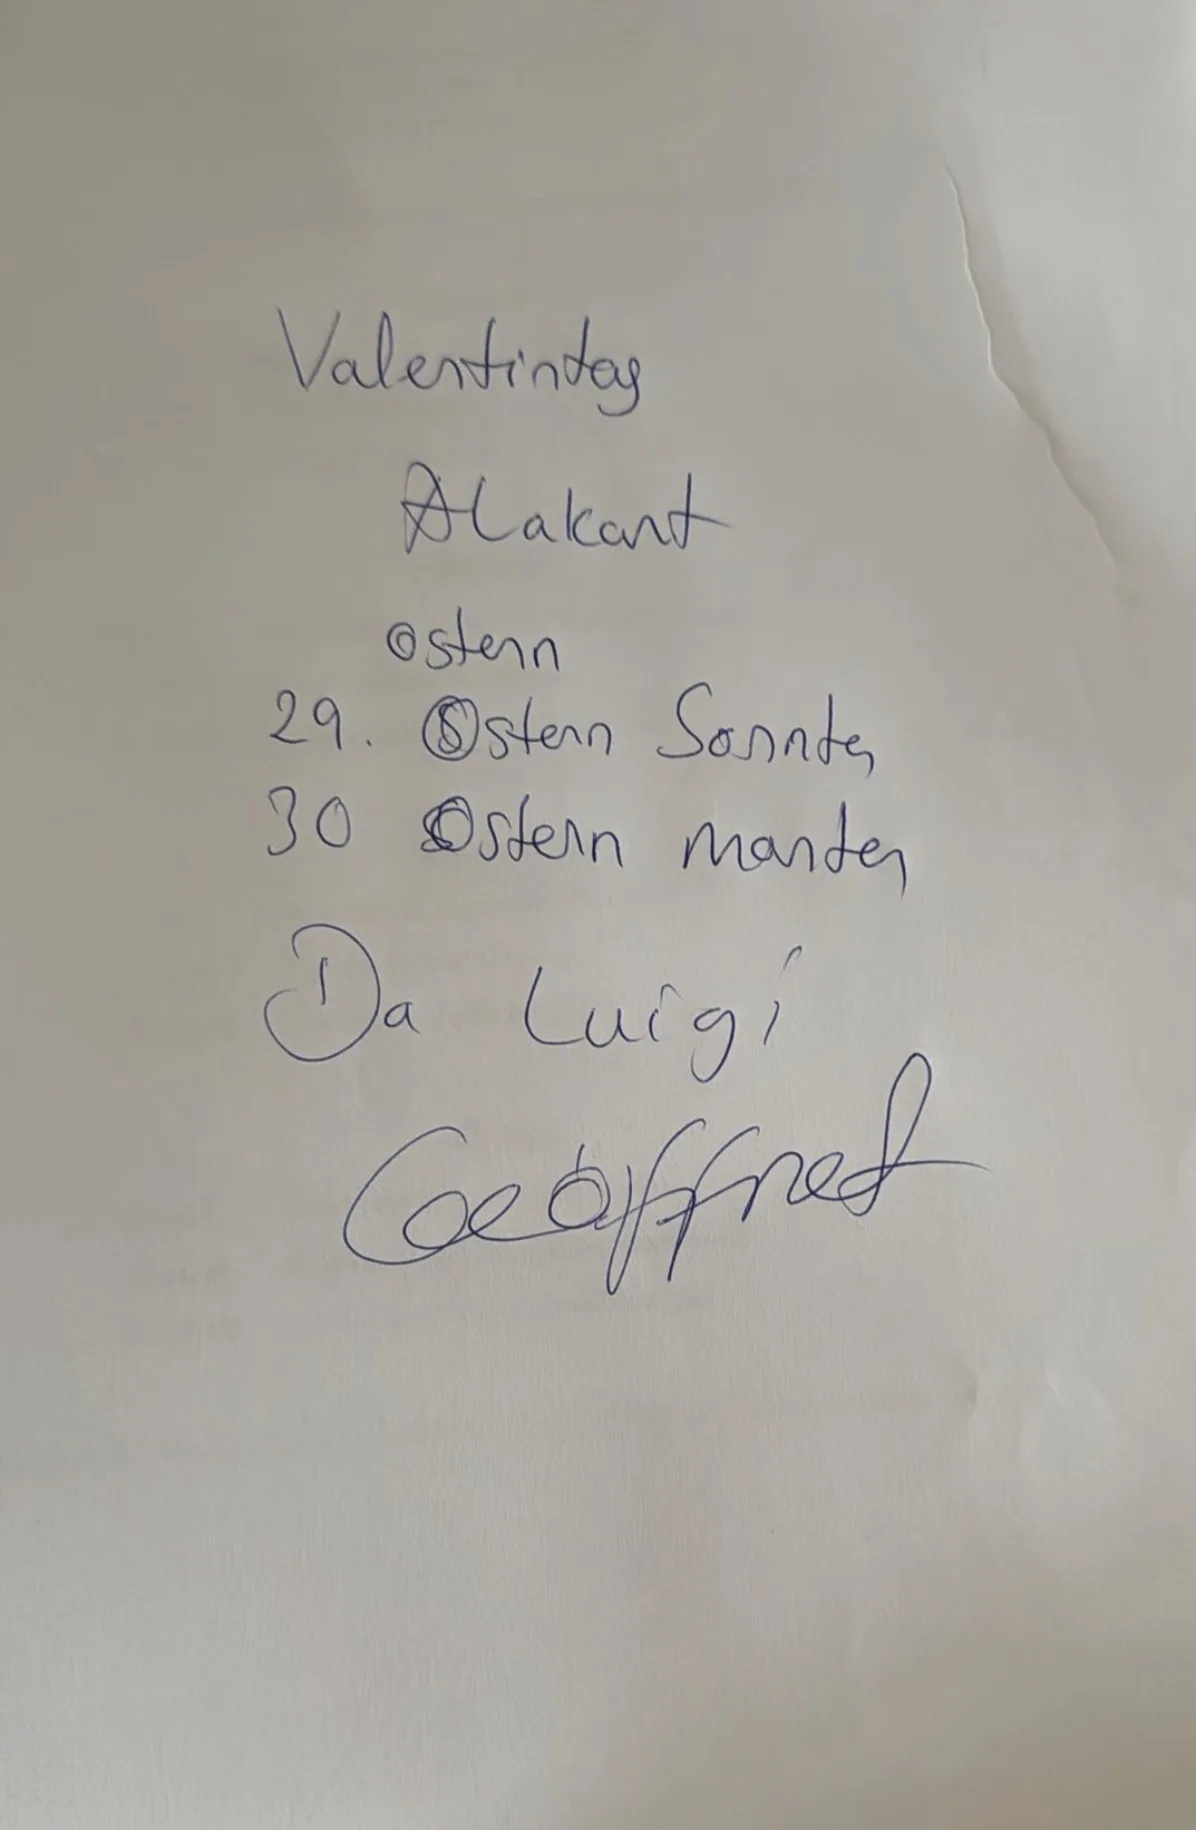 Valentintag
Alakart
Ostern
29. Ostern Sonntag
30 Ostern montag
Da Luigi
Geöffnet